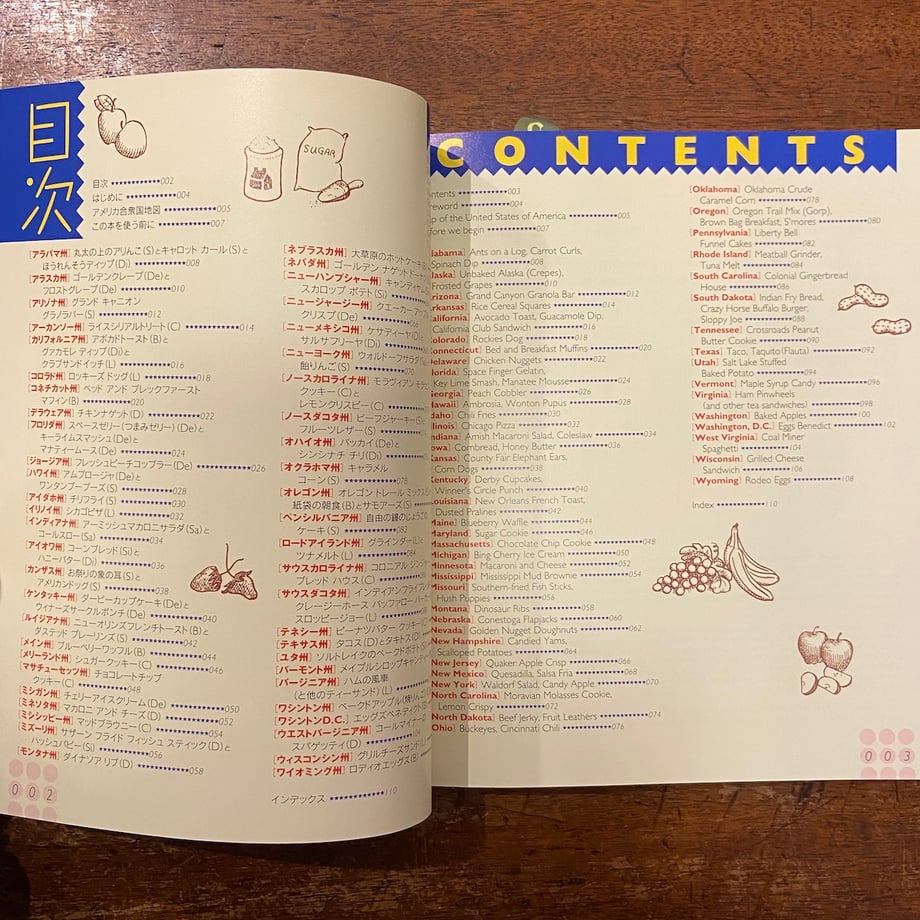 目次
SUGAR
目次 ••••••••••••002
はじめに ••••••••••••004
アメリカ合衆国地図 ••••••••••••005
この本を使う前に ••••••••••••007
[アラバマ州] 丸太の上のアリんこ(S)とキャロット カール(S)と
ほうれんそうディップ(Di) ••••••••••••008
[アラスカ州] ゴールデンクレープ(De)と
フロストグレープ(De) ••••••••••••010
[アリゾナ州] グランド キャニオン
グラノラバー(S) ••••••••••••012
[アーカンソー州] ライスシリアルトリート(C) ••••••••••••014
[カリフォルニア州] アボカドトースト(B)と
グァカモレ ディップ(Di)と
クラブサンドイッチ(L) ••••••••••••016
[コロラド州] ロッキーズ ドッグ(L) ••••••••••••018
[コネチカット州] ベッド アンド ブレックファースト
マフィン(B) ••••••••••••020
[デラウェア州] チキンナゲット(D) ••••••••••••022
[フロリダ州] スペースゼリー(つまみゼリー)(De)と
キーライムスマッシュ(De)と
マナティームース(De) ••••••••••••024
[ジョージア州] フレッシュピーチコッブラー(De) ••••••••••••026
[ハワイ州] アムブロージャ(De)と
ワンタンプープーズ(S) ••••••••••••028
[アイダホ州] チリフライ(S) ••••••••••••030
[イリノイ州] シカゴピザ(L) ••••••••••••032
[インディアナ州] アーミッシュマカロニサラダ(Sa)と
コールスロー(Sa) ••••••••••••034
[アイオワ州] コーンブレッド(Si)と
ハニーバター(Di) ••••••••••••036
[カンザス州] お祭りの象の耳(S)と
アメリカンドッグ(S) ••••••••••••038
[ケンタッキー州] ダービーカップケーキ(De)と
ウィナーズサークルポンチ(De) ••••••••••••040
[ルイジアナ州] ニューオリンズフレンチトースト(B)と
ダステッド プレーリンズ(S) ••••••••••••042
[メイン州] ブルーベリーワッフル(B) ••••••••••••044
[メリーランド州] シュガークッキー(C) ••••••••••••046
[マサチューセッツ州] チョコレートチップ
クッキー(C) ••••••••••••048
[ミシガン州] チェリーアイスクリーム(De) ••••••••••••050
[ミネソタ州] マカロニ アンド チーズ(D) ••••••••••••052
[ミシシッピー州] マッドブラウニー(C) ••••••••••••054
[ミズーリ州] サザーン フライド フィッシュ スティック(D)と
ハッシュパピー(Si) ••••••••••••056
[モンタナ州] ダイナソア リブ(D) ••••••••••••058
[ネブラスカ州] 大草原のホットケーキ
[ネバダ州] ゴールデン ナゲットドーナ
[ニューハンプシャー州] キャンディヤム
スカロップ ポテト(S)
[ニュージャージー州] クエーカー アップル
クリスプ(De)
[ニューメキシコ州] ケサディーヤ(D)
サルサフリーヤ(Di)
[ニューヨーク州] ウォルドーフサラダ(Sa)
飴りんご(S) ••••••••••••070
[ノースカロライナ州] モラヴィアン モラセス
クッキー(C)と
レモンクリスピー(C)
[ノースダコタ州] ビーフジャーキー(S)
フルーツレザー(S)
[オハイオ州] バッカイ(De)と
シンシナチ チリ(D)
[オクラホマ州] キャラメル
コーン(S) ••••••••••••078
[オレゴン州] オレゴン トレール ミックス
紙袋の朝食(B)とサモアーズ(S)
[ペンシルバニア州] 自由の鐘のじょうご
ケーキ(S) ••••••••••••082
[ロードアイランド州] グラインダー(L)と
ツナメルト(L) ••••••••••••084
[サウスカロライナ州] コロニアル ジン
ブレッド ハウス(C)
[サウスダコタ州] インディアンフライブ
クレージーホース バッファロー バー
スロッピージョー(L)
[テネシー州] ピーナッツバター クッキー
[テキサス州] タコス(D)とタキトス(D)
[ユタ州] ソルトレイクのベークドポテト
[バーモント州] メイプルシロップキャンディ
[バージニア州] ハムの風車
(と他のティーサンド)(L)
[ワシントン州] ベークドアップル
[ワシントンD.C.] エッグズベネディクト(B)
[ウエストバージニア州] コールマイナー
スパゲッティ(D) ••••••••••••104
[ウィスコンシン州] グリルチーズサンド(L)
[ワイオミング州] ロディオエッグズ(B)
インデックス ••••••••••••110
002
CONTENTS
ntents ••••••••••••003
reword ••••••••••••004
p of the United States of America ••••••••••••005
fore we begin ••••••••••••007
labama] Ants on a Log, Carrot Curls,
Spinach Dip ••••••••••••008
laska] Unbaked Alaska (Crepes),
Frosted Grapes ••••••••••••010
rizona] Grand Canyon Granola Bar ••••••••••••012
rkansas] Rice Cereal Squares ••••••••••••014
alifornia] Avocado Toast, Guacamole Dip,
California Club Sandwich ••••••••••••016
olorado] Rockies Dog ••••••••••••018
onnecticut] Bed and Breakfast Muffins ••••••••••••020
elaware] Chicken Nuggets ••••••••••••022
lorida] Space Finger Gelatin,
Key Lime Smash, Manatee Mousse ••••••••••••024
eorgia] Peach Cobbler ••••••••••••026
awaii] Ambrosia, Wonton Pupus ••••••••••••028
daho] Chili Fries ••••••••••••030
llinois] Chicago Pizza ••••••••••••032
ndiana] Amish Macaroni Salad, Coleslaw ••••••••••••034
owa] Cornbread, Honey Butter ••••••••••••036
ansas] County Fair Elephant Ears,
Corn Dogs ••••••••••••038
Kentucky] Derby Cupcakes,
Winner's Circle Punch ••••••••••••040
ouisiana] New Orleans French Toast,
Dusted Pralines ••••••••••••042
Maine] Blueberry Waffle ••••••••••••044
Maryland] Sugar Cookie ••••••••••••046
Massachusetts] Chocolate Chip Cookie ••••••••••••048
Michigan] Bing Cherry Ice Cream ••••••••••••050
Minnesota] Macaroni and Cheese ••••••••••••052
Mississippi] Mississippi Mud Brownie ••••••••••••054
Missouri] Southern-fried Fish Sticks,
Hush Puppies ••••••••••••056
Montana] Dinosaur Ribs ••••••••••••058
Nebraska] Conestoga Flapjacks ••••••••••••060
Nevada] Golden Nugget Doughnuts ••••••••••••062
New Hampshire] Candied Yams,
Scalloped Potatoes ••••••••••••064
New Jersey] Quaker Apple Crisp ••••••••••••066
New Mexico] Quesadilla, Salsa Fria ••••••••••••068
New York] Waldorf Salad, Candy Apple ••••••••••••070
North Carolina] Moravian Molasses Cookie,
Lemon Crispy ••••••••••••072
North Dakota] Beef Jerky, Fruit Leathers ••••••••••••074
Ohio] Buckeyes, Cincinnati Chili ••••••••••••076
[Oklahoma] Oklahoma Crude
Caramel Corn ••••••••••••078
[Oregon] Oregon Trail Mix (Gorp),
Brown Bag Breakfast, S'mores ••••••••••••080
[Pennsylvania] Liberty Bell
Funnel Cakes ••••••••••••082
[Rhode Island] Meatball Grinder,
Tuna Melt ••••••••••••084
[South Carolina] Colonial Gingerbread
House ••••••••••••086
[South Dakota] Indian Fry Bread,
Crazy Horse Buffalo Burger,
Sloppy Joe ••••••••••••088
[Tennessee] Crossroads Peanut
Butter Cookie ••••••••••••090
[Texas] Taco, Taquito(Flauta) ••••••••••••092
[Utah] Salt Lake Stuffed
Baked Potato ••••••••••••094
[Vermont] Maple Syrup Candy ••••••••••••096
[Virginia] Ham Pinwheels
(and other tea sandwiches) ••••••••••••098
[Washington] Baked Apples ••••••••••••100
[Washington, D.C.] Eggs Benedict ••••••••••••102
[West Virginia] Coal Miner
Spaghetti ••••••••••••104
[Wisconsin] Grilled Cheese
Sandwich ••••••••••••106
[Wyoming] Rodeo Eggs ••••••••••••108
Index ••••••••••••110
003